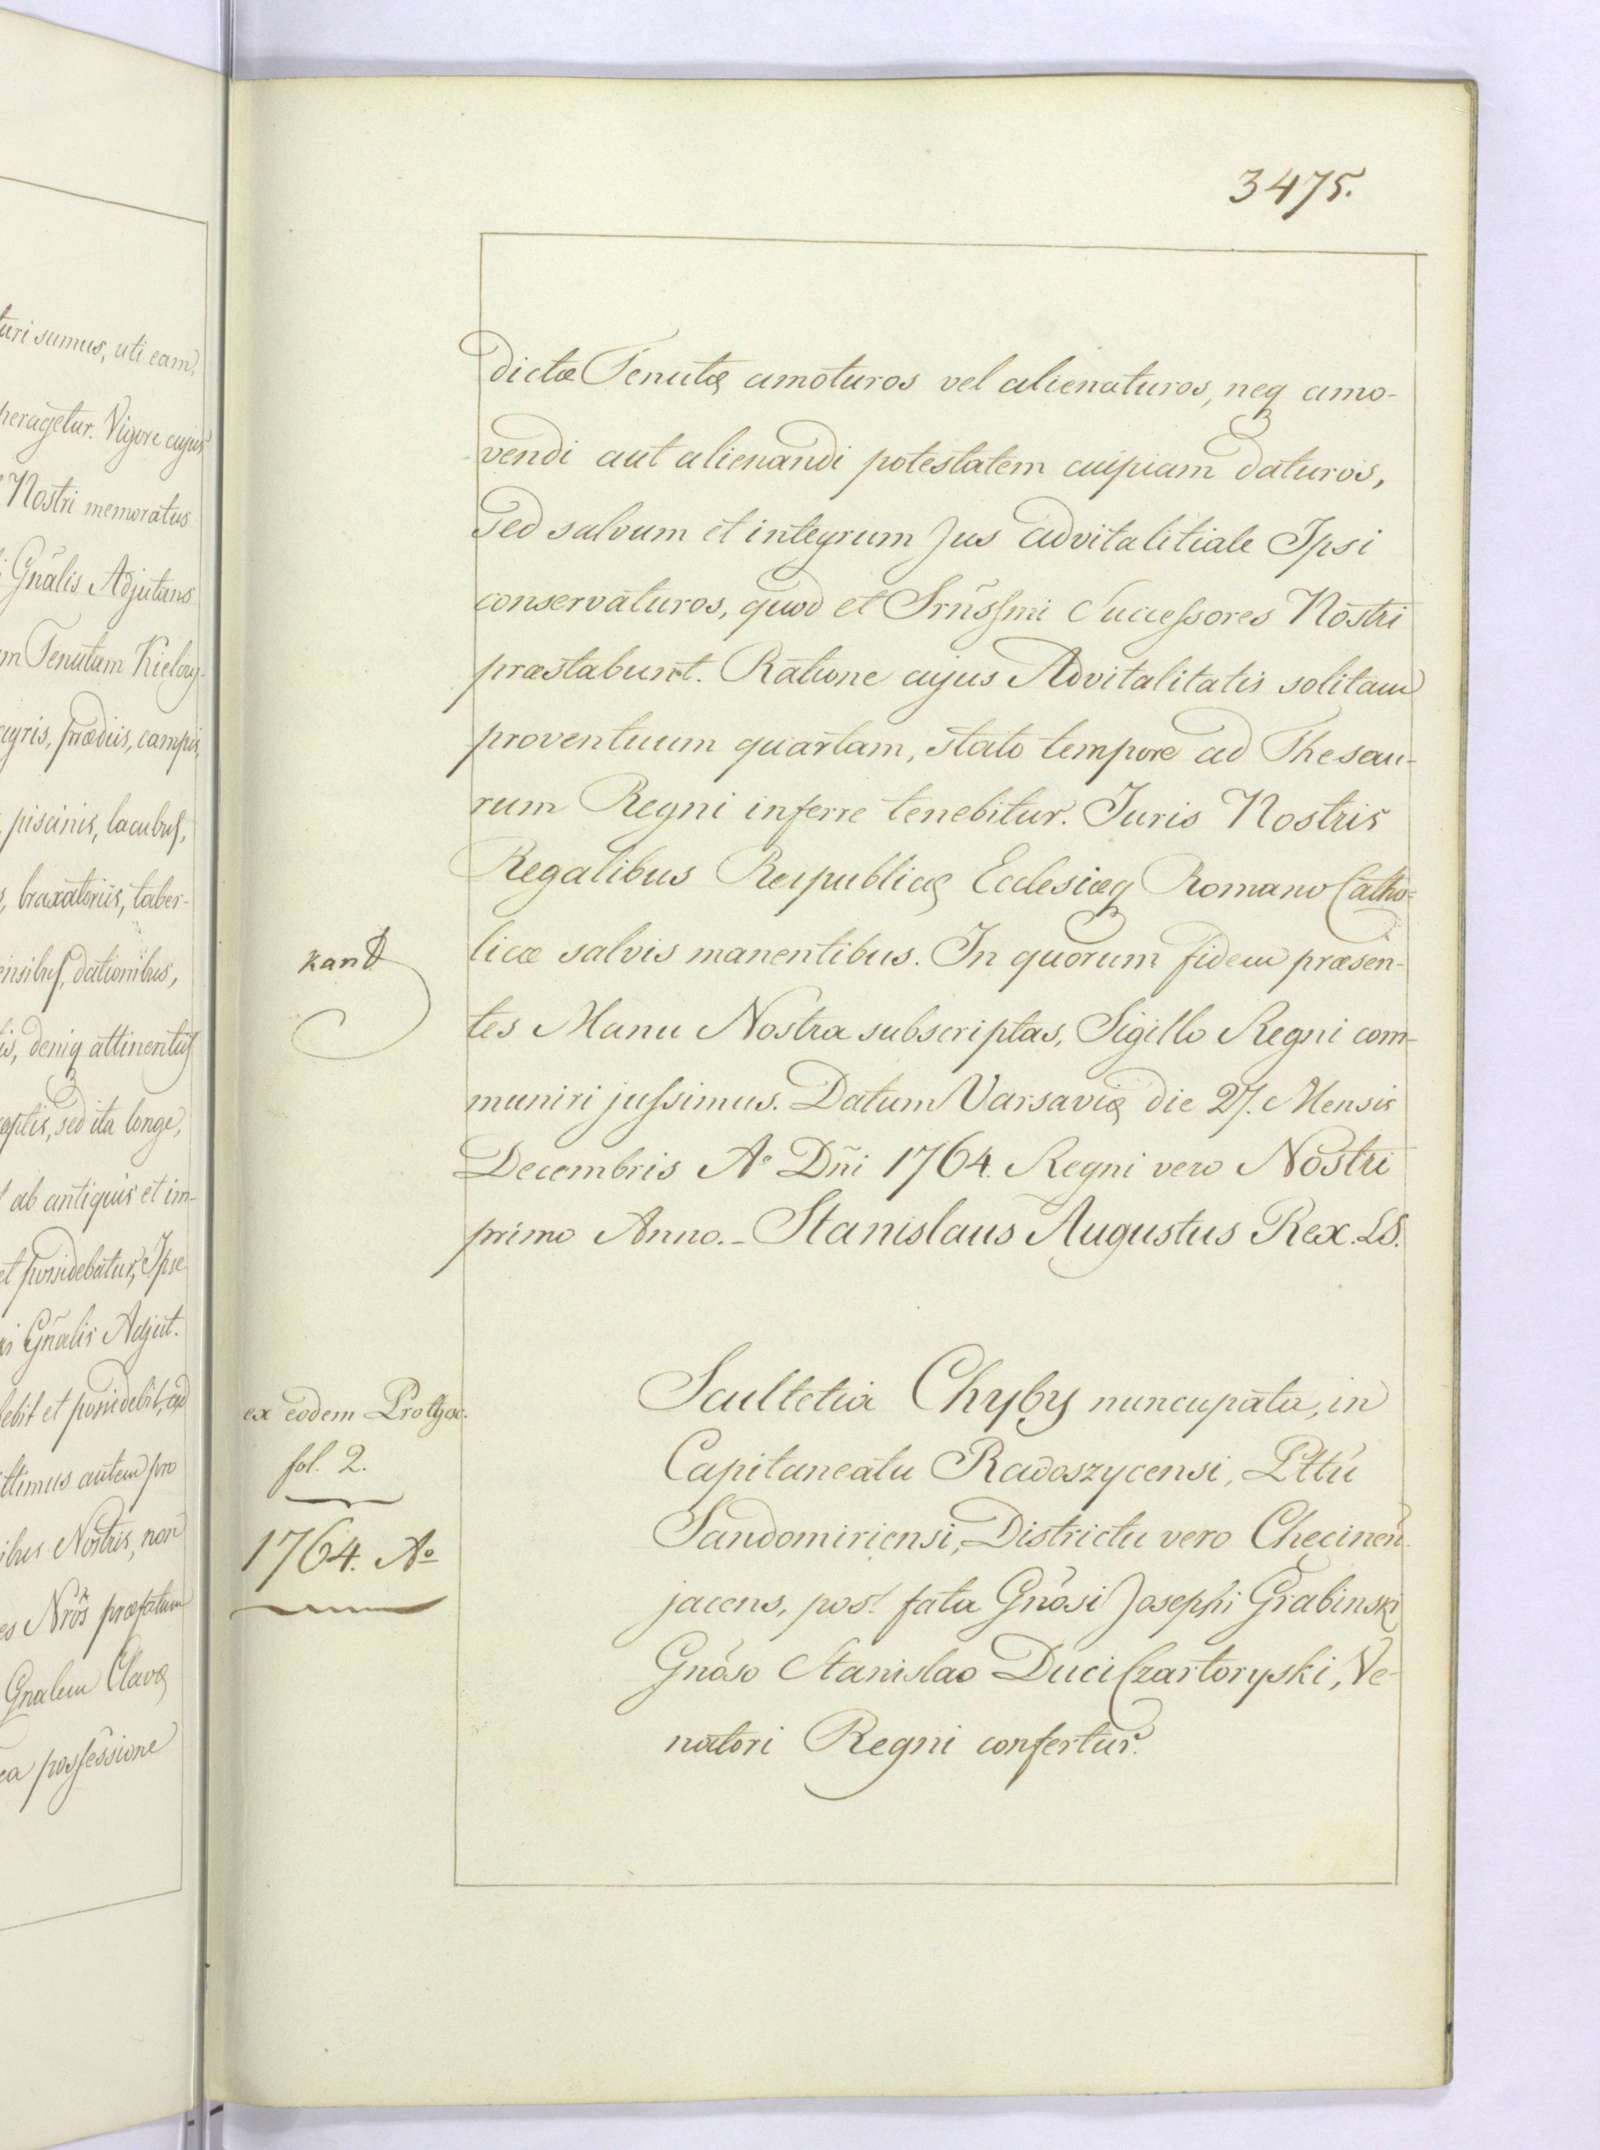 turi sumus, uti eam,
peragetur. Vigore cujus
Nostri memoratus
Gnãlis Adjutans
m Tenutam Kielczy-
agris, prædiis, campis,
piscinis, lacubus,
braxatoriis, taber-
ensibus, dationibus,
is, deniq attinentiis
eptis, sed ita longe,
ab antiquis et im-
et possidebatur, Ipse
Gñalis Adjut.
ebit et possidebit, ad
ttimus autem pro
ibus Nostris, non
es Nrõs præfatum
Gnalem Clavæ
ea possessione
3475.
dictæ Tenutæ amoturos vel alienaturos, neq amo-
vendi aut alienandi potestatem cuipiam daturos,
Sed salvum et integrum Jus advitalitiale Ipsi
conservaturos, quod et Srñssmi Successores Nostri
præstabunt. Ratione cujus Advitalitatis solitam
proventuum quartam, stato tempore ad Thesau-
rum Regni inferre tenebitur. Juris Nostris
Regalibus Reipublicæ Ecclesiæq Romano Catho-
licæ salvis manentibus. In quorum fidem præsen-
tes Manu Nostra subscriptas, Sigillo Regni com-
muniri jussimus. Datum Varsaviæ die 27. Mensis
Decembris Aº Dñi 1764. Regni vero Nostri
primo Anno._ Stanislaus Augustus Rex. LS.
ex eodem
fol. 2.
1764. Aº
Scultetia Chyby nuncupata, in
Capitaneatu Radoszycensi, Pttũ
Sandomiriensi, Districtu vero Checineñ.
jacens, post fata Gñosi Josephi Grabinski
Gñoso Stanislao Duci Czartoryski, Ve-
natori Regni confertur.